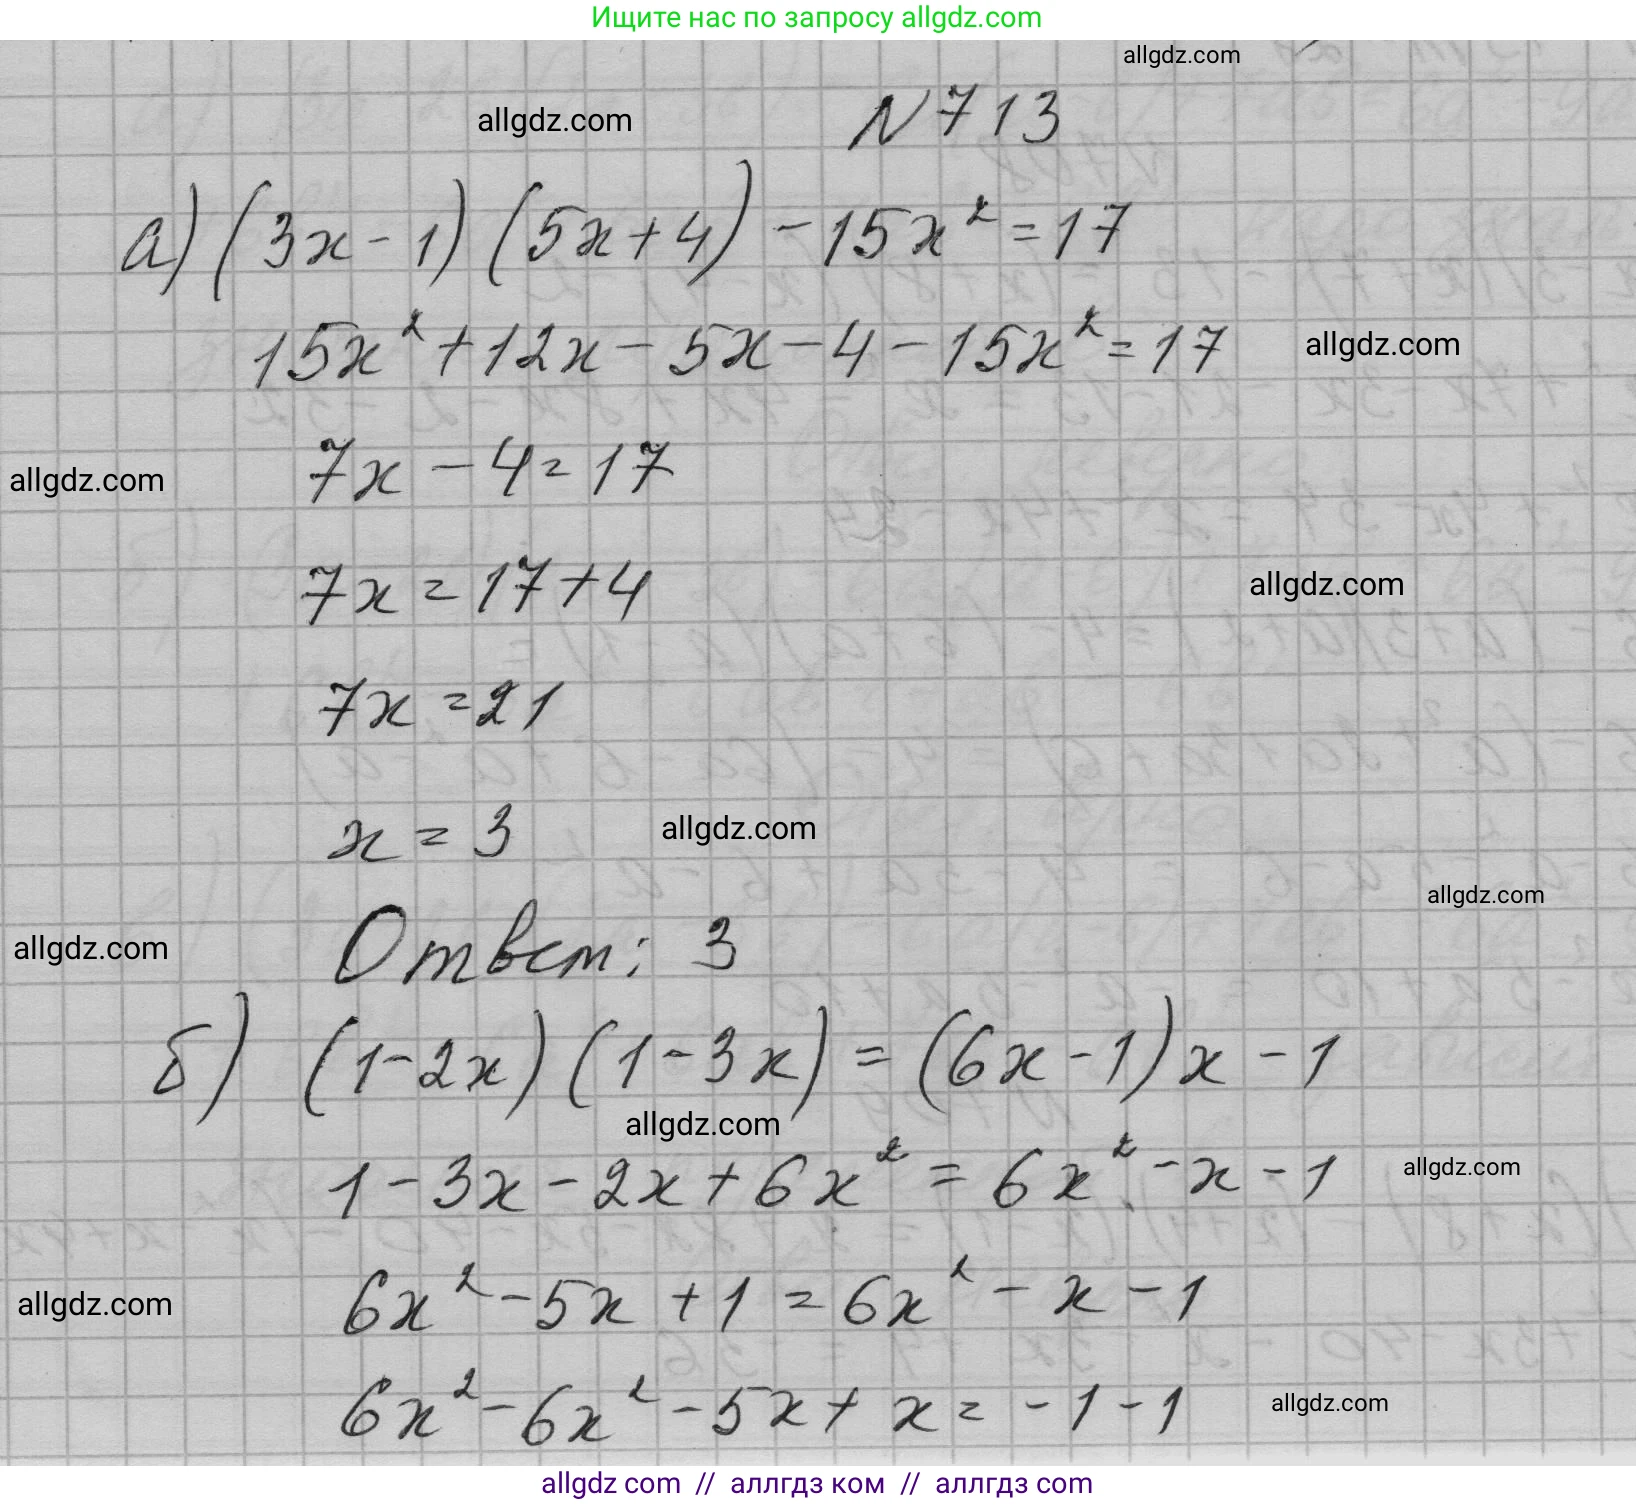 Ищите нас по запросу allgdz.com
allgdz.com
allgdz.com
N 713
а) (3x - 1) (5x + 4) - 15x² = 17
15x² + 12x - 5x - 4 - 15x² = 17
allgdz.com
7x - 4 = 17
allgdz.com
7x = 17 + 4
allgdz.com
7x = 21
x = 3
allgdz.com
allgdz.com
Ответ: 3
allgdz.com
б) (1 - 2x) (1 - 3x) = (6x - 1) x - 1
allgdz.com
1 - 3x - 2x + 6x² = 6x² - x - 1
allgdz.com
6x² - 5x + 1 = 6x² - x - 1
allgdz.com
6x² - 6x² - 5x + x = -1 - 1
allgdz.com
allgdz com // аллгдз ком // аллгдз.com